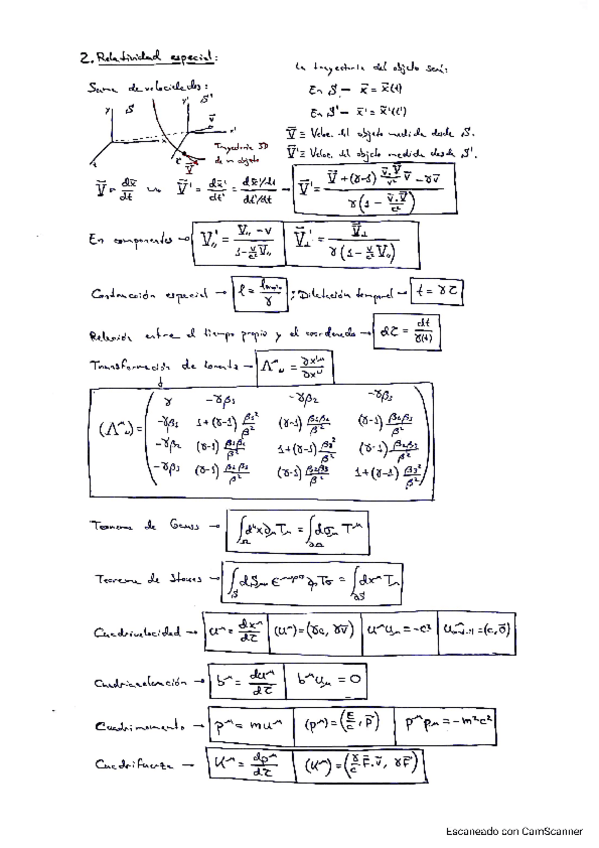 2. Relatividad especial:
Suma de velocidades:
La trayectoria del objeto será:
En S – x⃗ = x⃗(t)
En S' – x⃗' = x⃗'(t')
V⃗ ≡ Veloc. del objeto medida desde S.
V⃗' ≡ Veloc. del objeto medida desde S'.
y S y' S' x'
Trayectoria 3D de un objeto
V⃗ = dx⃗/dt → V⃗' = dx⃗'/dt' = (dx⃗'/dt)/(dt'/dt) → V⃗' = (V⃗ + (γ-1) (v⃗.V⃗/v²) v⃗ - γv⃗) / (γ(1 - v⃗.V⃗/c²))
En componentes → V'∥ = (V∥ - v)/(1 - (v/c²)V∥) | V⃗'⊥ = V⃗⊥/(γ(1 - (v/c²)V∥))
Contracción espacial → l = lpropio/γ ; Dilatación temporal → t = γτ
Relación entre el tiempo propio y el coordenado → dτ = dt/γ(t)
Transformación de Lorentz → Λ^μ_ν = ∂x'^μ/∂x^ν
(Λ^μ_ν) =
γ -γβ1 -γβ2 -γβ3
-γβ1 1+(γ-1) β1²/β² (γ-1) β1β2/β² (γ-1) β1β3/β²
-γβ2 (γ-1) β2β1/β² 1+(γ-1) β2²/β² (γ-1) β2β3/β²
-γβ3 (γ-1) β1β3/β² (γ-1) β2β3/β² 1+(γ-1) β3²/β²
Teorema de Gauss → ∫_Ω d⁴x ∂_μ T^μ = ∫_∂Ω dσ_μ T^μ
Teorema de Stokes → ∫_S dS_μν ε^μνρσ ∂_ρ T_σ = ∫_∂S dx^μ T_μ
Cuadrivelocidad → u^μ = dx^μ/dτ | (u^μ) = (γc, γv⃗) | u^μ u_μ = -c² | = (c, 0⃗)
Cuadriaceleración → b^μ = du^μ/dτ | b^μ u_μ = 0
Cuadrimomento → p^μ = mu^μ | (p^μ) = (E/c, p⃗) | p^μ p_μ = -m²c²
Cuadrifuerza → K^μ = dp^μ/dτ | (K^μ) = (γ/c F⃗.v⃗, γF⃗)
Escaneado con CamScanner